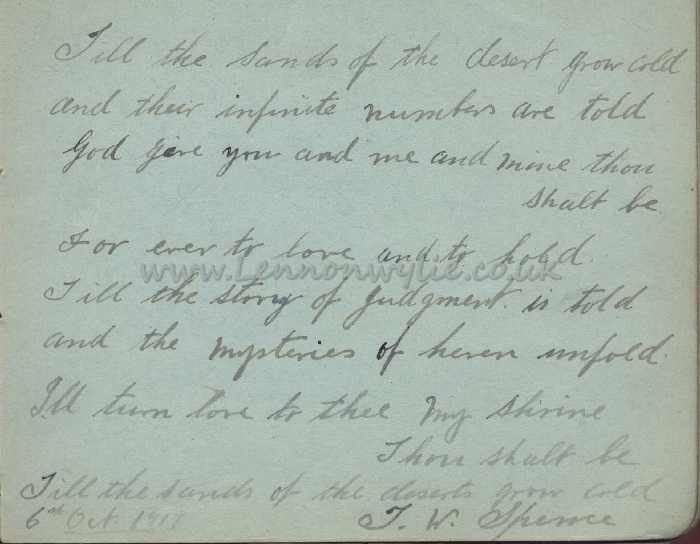 Till the sands of the desert grow cold
and their infinite numbers are told
God gave you and me and mine thou
shalt be
For ever to love and to hold.
www.Lennonwylie.co.uk
Till the story of Judgment is told
and the mysteries of heven unfold.
I'll turn love to thee my shrine
Thou shalt be
Till the sands of the deserts grow cold
6th Oct.
T. W. Spence